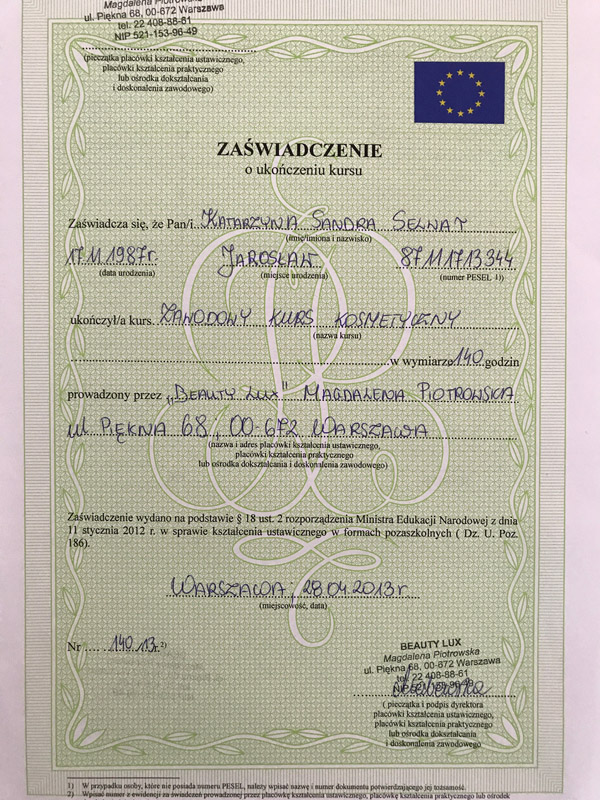 Magdalena Piotrowska
ul. Piękna 68, 00-672 Warszawa
tel. 22 408-88-61
NIP 521-153-96-49
(pieczątka placówki kształcenia ustawicznego,
placówki kształcenia praktycznego
lub ośrodka dokształcania
i doskonalenia zawodowego)
ZAŚWIADCZENIE
o ukończeniu kursu
Zaświadcza się, że Pan/i KATARZYNA SANDRA SELWAT
(imię/imiona i nazwisko)
17.11.1987r. JAROSŁAW 87111713344
(data urodzenia) (miejsce urodzenia) (numer PESEL 1))
ukończył/a kurs ZAWODOWY KURS KOSMETYCZNY
(nazwa kursu)
w wymiarze 140 godzin
prowadzony przez „BEAUTY LUX" MAGDALENA PIOTROWSKA
ul. PIĘKNA 68, 00-672 WARSZAWA
(nazwa i adres placówki kształcenia ustawicznego,
placówki kształcenia praktycznego
lub ośrodka dokształcania i doskonalenia zawodowego)
Zaświadczenie wydano na podstawie § 18 ust. 2 rozporządzenia Ministra Edukacji Narodowej z dnia
11 stycznia 2012 r. w sprawie kształcenia ustawicznego w formach pozaszkolnych ( Dz. U. Poz.
186).
WARSZAWA, 28.04.2013r.
(miejscowość, data)
Nr 140.13r. 2)
BEAUTY LUX
Magdalena Piotrowska
ul. Piękna 68, 00-672 Warszawa
tel. 22 408-88-61
NIP 521-153-96-49
( pieczątka i podpis dyrektora
placówki kształcenia ustawicznego,
placówki kształcenia praktycznego
lub ośrodka dokształcania
i doskonalenia zawodowego
1) W przypadku osoby, które nie posiada numeru PESEL, należy wpisać nazwę i numer dokumentu potwierdzającego jej tożsamość.
2) Wpisać numer z ewidencji zaświadczeń prowadzonej przez placówkę kształcenia ustawicznego, placówkę kształcenia praktycznego lub ośrodek